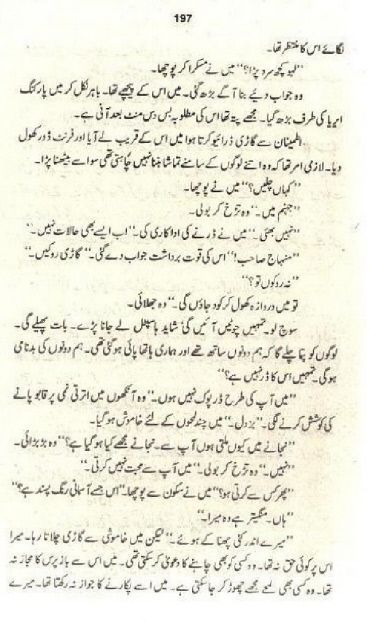 197
لگائے اس کا منتظر تھا۔
"لہو کچھ سرد پڑا؟" میں نے مسکرا کر پوچھا۔
وہ جواب دیئے بنا آگے بڑھ گئی۔ میں اس کے پیچھے تھا۔ باہر نکل کر میں پارکنگ
ایریا کی طرف بڑھ گیا۔ مجھے پتہ تھا اس کی مطلوبہ بس دس منٹ بعد آنی ہے۔
اطمینان سے گاڑی ڈرائیو کرتا ہوا میں اس کے قریب لے آیا اور فرنٹ ڈور کھول
دیا۔ لازمی امر تھا کہ وہ اتنے لوگوں کے سامنے تماشا بننا نہیں چاہتی تھی سو اسے بیٹھنا پڑا۔
"کہاں چلیں؟" میں نے پوچھا۔
"جہنم میں۔" وہ تڑخ کر بولی۔
"نہیں بھئی۔" میں نے ڈرنے کی اداکاری کی۔ "اب ایسے بھی حالات نہیں۔"
"منہاج صاحب!" اس کی قوت برداشت جواب دے گئی۔ "گاڑی روکیں۔"
"نہ روکوں تو؟"
تو میں دروازہ کھول کر کود جاؤں گی۔ وہ جھلائی۔
سوچ لو۔ تمہیں چوٹیں آئیں گی، شاید ہاسپٹل لے جانا پڑے۔ بات پھیلے گی۔
لوگوں کو پتا چلے گا کہ ہم دونوں ساتھ تھے اور ہماری ہاتھا پائی ہو گئی تھی۔ ہم دونوں کی بدنامی
ہو گی۔ تمہیں اس کا ڈر نہیں ہے؟"
"میں آپ کی طرح ڈرپوک نہیں ہوں۔" وہ آنکھوں میں اترتی نمی پر قابو پانے
کی کوشش کرنے لگی۔ "بزدل۔" میں چند لمحوں کے لئے خاموش ہو گیا۔
"نجانے میں کیوں ملتی ہوں آپ سے۔ نجانے مجھے کیا ہو گیا ہے؟" وہ بڑبڑائی۔
"نہیں۔" وہ تڑخ کر بولی۔ "میں آپ سے محبت نہیں کرتی۔"
"پھر کس سے کرتی ہو؟" میں نے سکون سے پوچھا۔ "اس جسے آسمانی رنگ پسند ہے؟"
"ہاں۔ منگیتر ہے وہ میرا۔"
"میرے اندر کئی چھنا کے ہوئے۔" لیکن میں خاموشی سے گاڑی چلاتا رہا۔ میرا
اس پر کوئی حق نہ تھا۔ وہ کسی کو بھی چاہنے کا دعویٰ کر سکتی تھی۔ میں اس سے باز پرس کا مجاز نہ
تھا۔ وہ کسی بھی لمحے مجھے چھوڑ کر جا سکتی ہے۔ میں اسے پکارنے کا جواز نہ رکھتا تھا۔ میرے